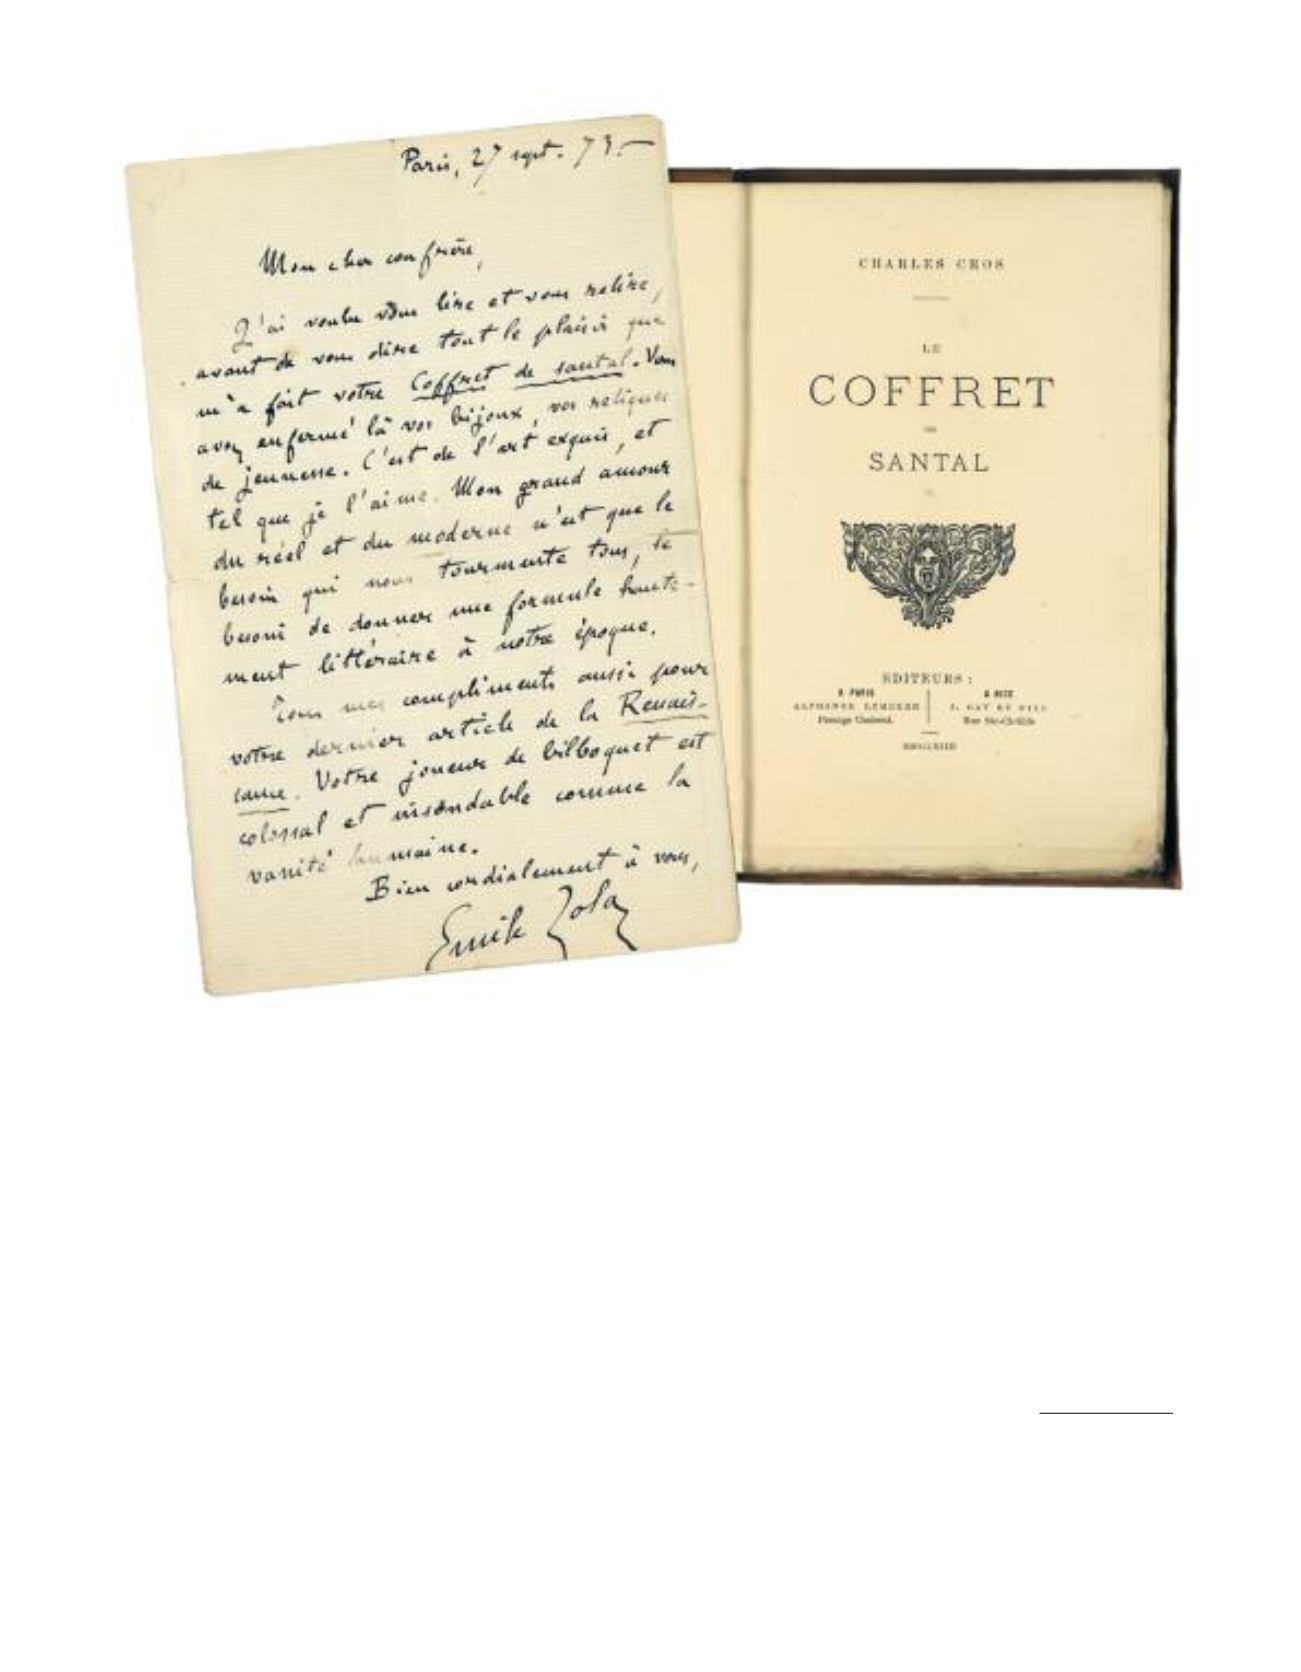 Paris, 27 sept. 73.
Mon cher confrère,
J'ai voulu vous lire et vous relire,
avant de vous dire tout le plaisir que
m'a fait votre Coffret de santal. Vous
avez enfermé là vos bijoux, vos reliques
de jeunesse. C'est de l'art exquis, et
tel que je l'aime. Mon grand amour
du réel et du moderne n'est que le
besoin qui nous tourmente tous, le
besoin de donner une formule haute-
ment littéraire à notre époque.
Tous mes compliments aussi pour
votre dernier article de la Renais-
sance. Votre joueur de bilboquet est
colossal et insondable comme la
vanité humaine.
Bien cordialement à vous,
Emile Zola
CHARLES CROS
LE
COFFRET
DE
SANTAL
EDITEURS :
A PARIS
ALPHONSE LEMERRE
Passage Choiseul.
A NICE
J. GAY ET FILS
Rue Ste-Clotilde
MDCCCLXXIII